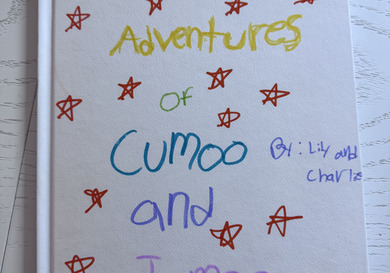 Adventures
of
Cumoo
By: Lily and
Charlie
and